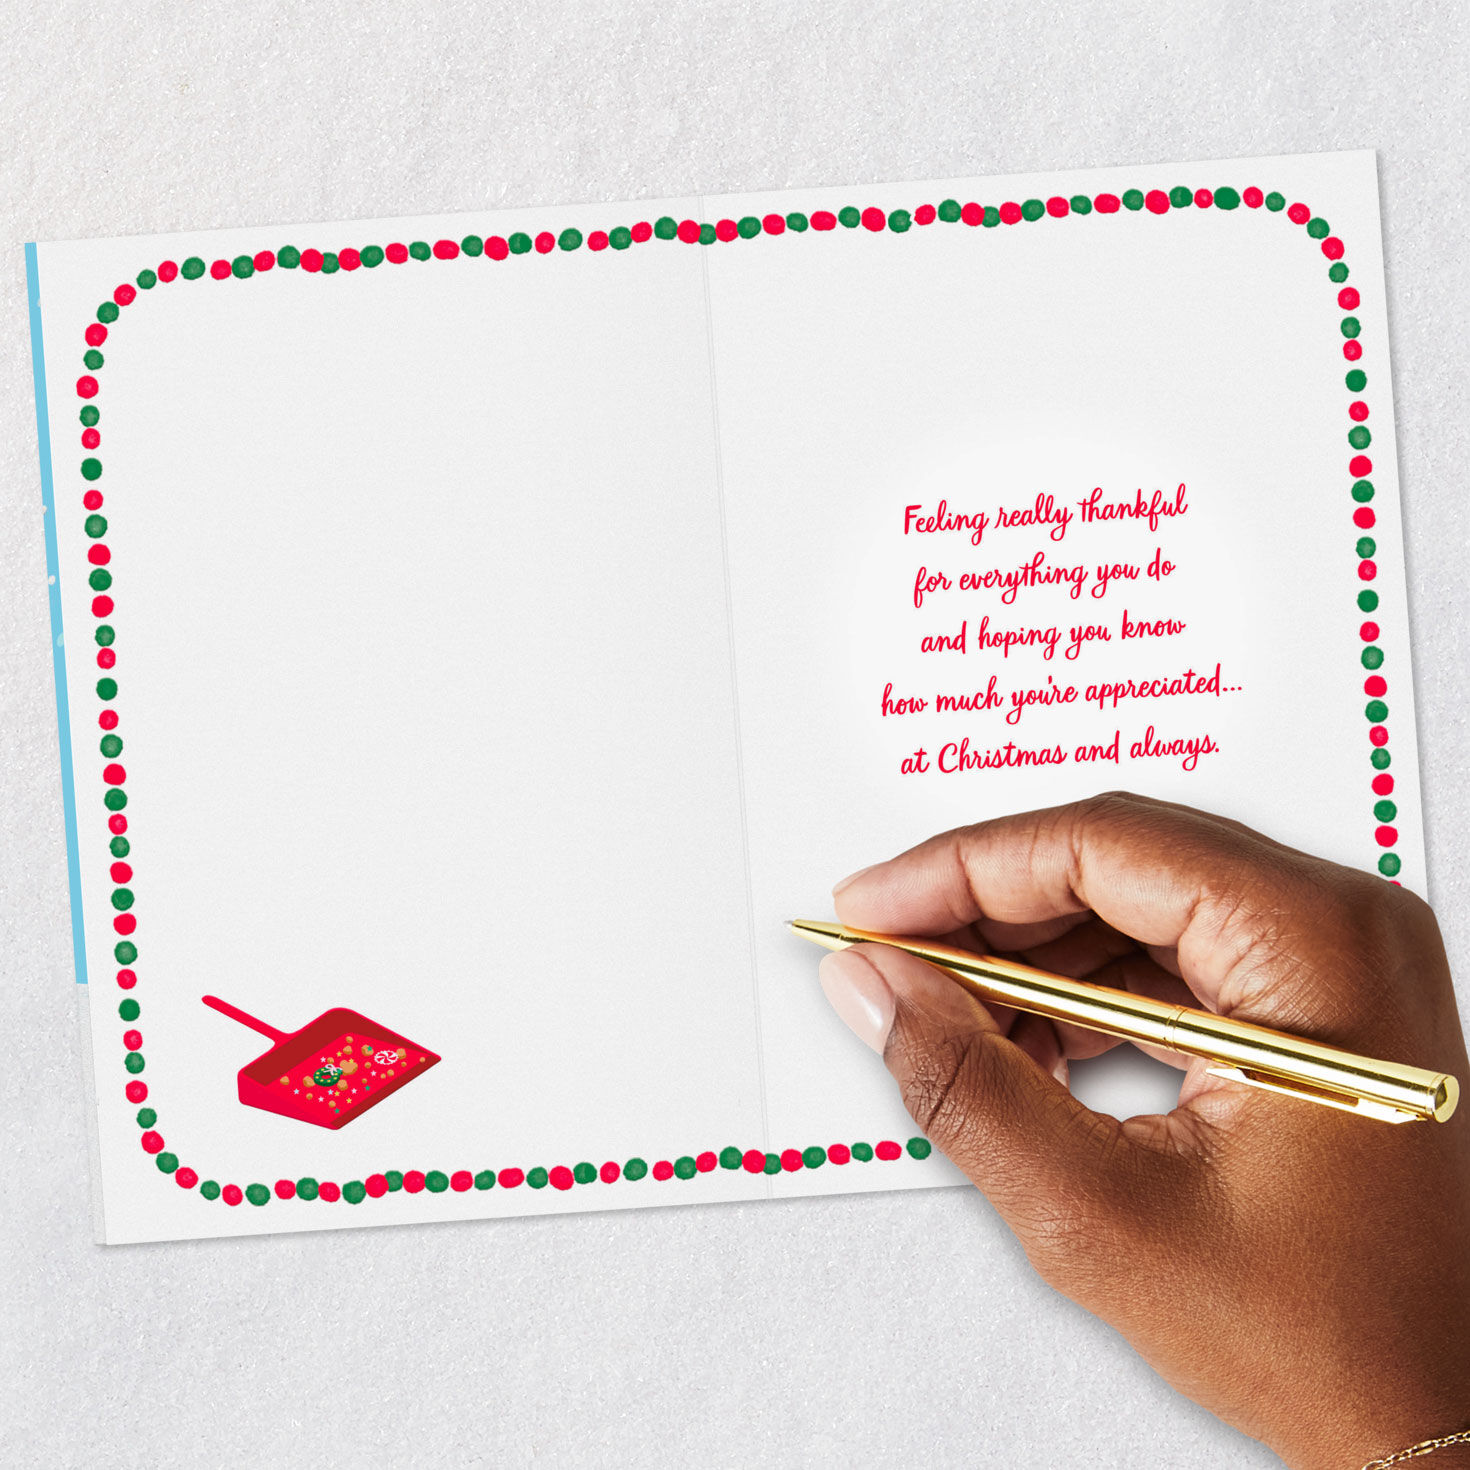 Feeling really thankful
for everything you do
and hoping you know
how much you're appreciated...
at Christmas and always.